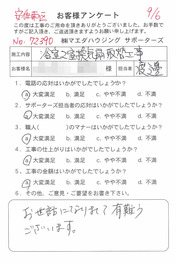 安佐南区 お客様アンケート 9/6
この度は工事のご用命を頂きありがとうございました。お手数ですが
ご記入頂き、ご返送頂きますようお願い申し上げます。
No. 72390 ㈱マエダハウジング サポーターズ
工事内容 浴室換気扇取替工事
お客様名 様 担当者 渡邉
1. 電話の応対はいかがでしたでしょうか?
a. 大変満足 b. 満足 c. やや不満 d. 不満
2. サポーターズ担当者の応対はいかがでしたでしょうか?
a. 大変満足 b. 満足 c. やや不満 d. 不満
3. 職人( )のマナーはいかがでしたでしょうか?
a. 大変満足 b. 満足 c. やや不満 d. 不満
4. 工事の仕上がりはいかがでしたでしょうか?
a. 大変満足 b. 満足 c. やや不満 d. 不満
5. 工事全体はいかがでしたでしょうか?
a. 大変満足 b. 満足 c. やや不満 d. 不満
6. その他、ご意見・ご要望をお書き下さい。
お世話になりまして有難う
ございます。